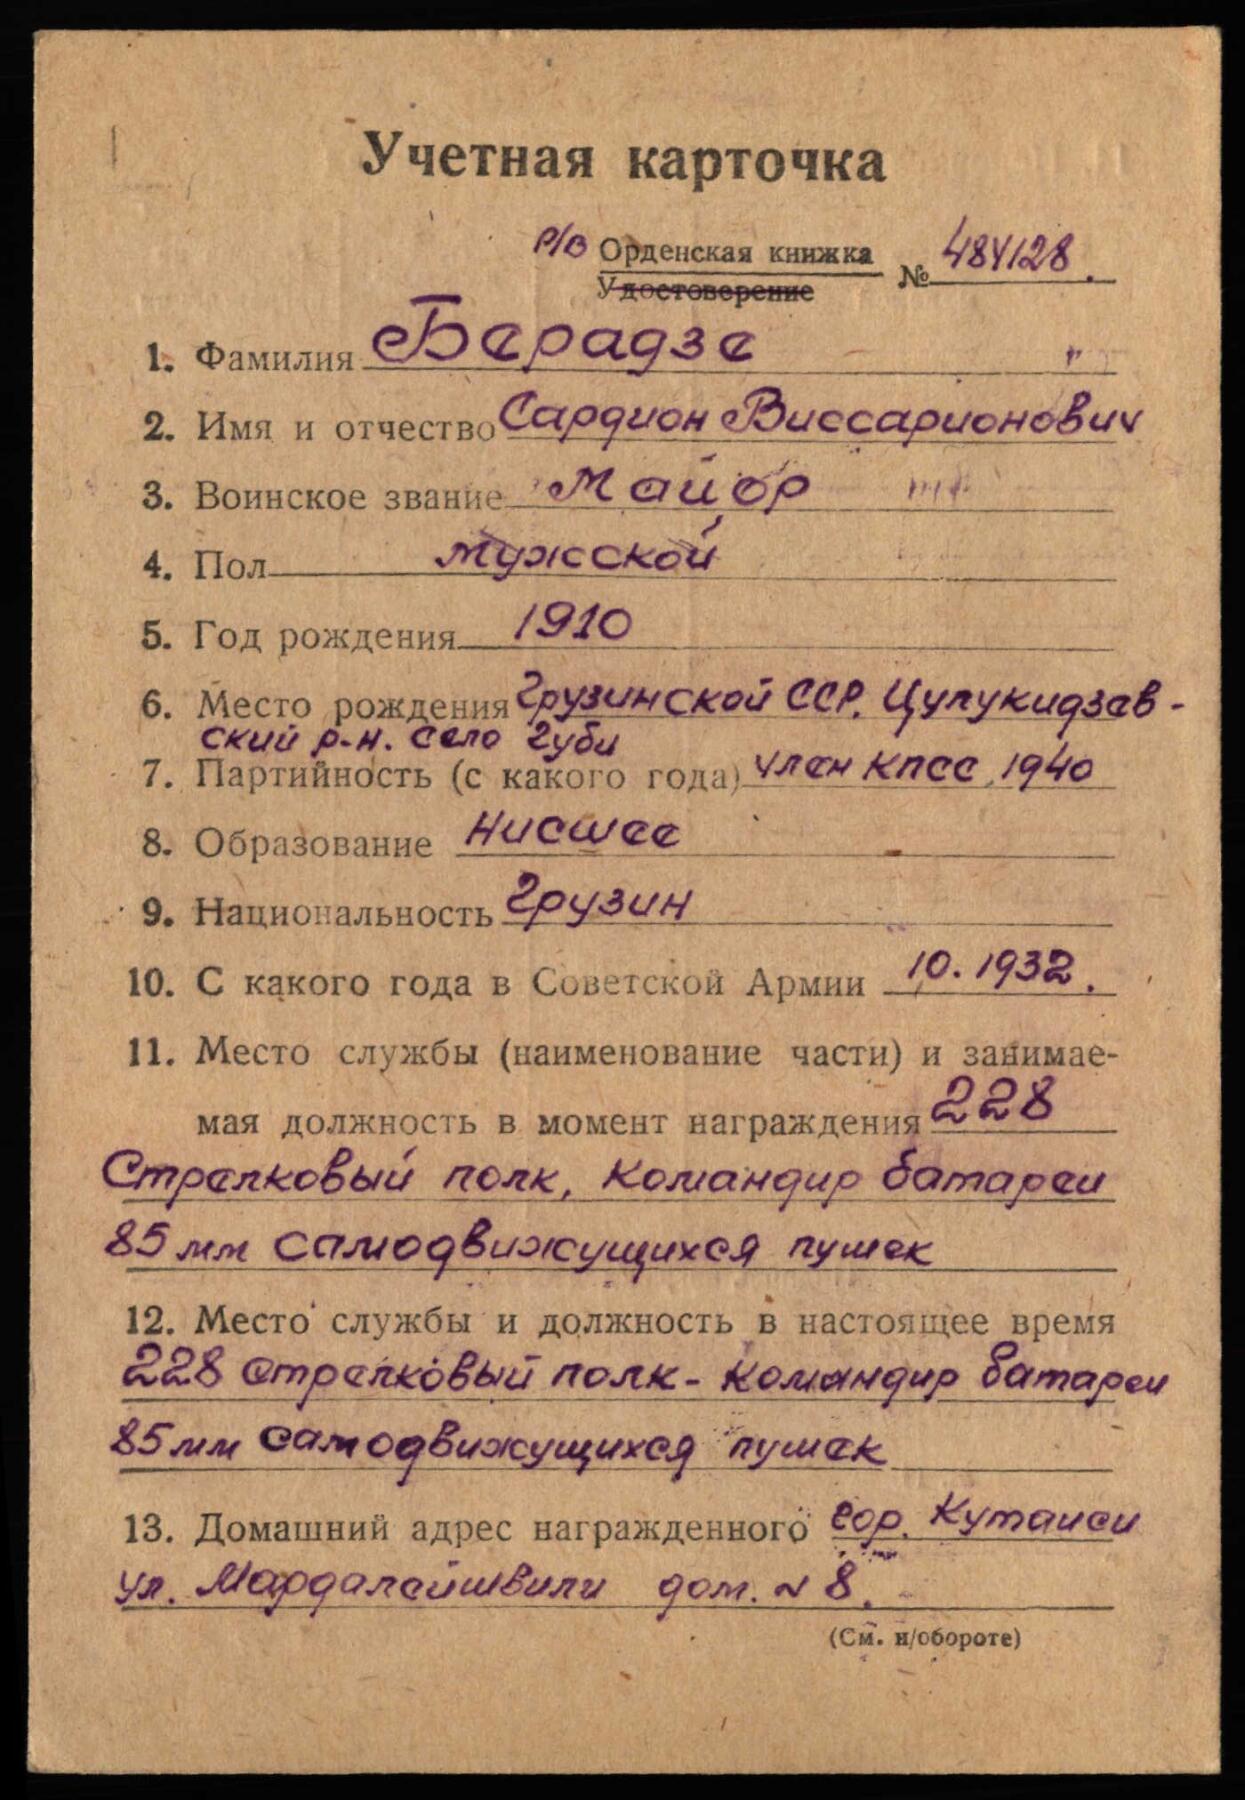 Учетная карточка
Р/В Орденская книжка № 484128.
Удостоверение
1. Фамилия Берадзе
2. Имя и отчество Сардион Виссарионович
3. Воинское звание Майор
4. Пол мужской
5. Год рождения 1910
6. Место рождения Грузинской ССР. Цулукидзев-
ский р-н. село Губи
7. Партийность (с какого года) член КПСС, 1940
8. Образование Нисшее
9. Национальность Грузин
10. С какого года в Советской Армии 10.1932.
11. Место службы (наименование части) и занимае-
мая должность в момент награждения 228
Стрелковый полк, Командир батареи
85 мм самодвижущихся пушек
12. Место службы и должность в настоящее время
228 стрелковый полк - командир батареи
85 мм самодвижущихся пушек
13. Домашний адрес награжденного гор. Кутаиси
ул. Мардалейшвили дом. N 8.
(См. н/обороте)